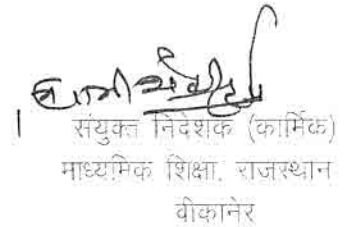 संयुक्त निदेशक (कार्मिक)
माध्यमिक शिक्षा, राजस्थान
वीकानेर